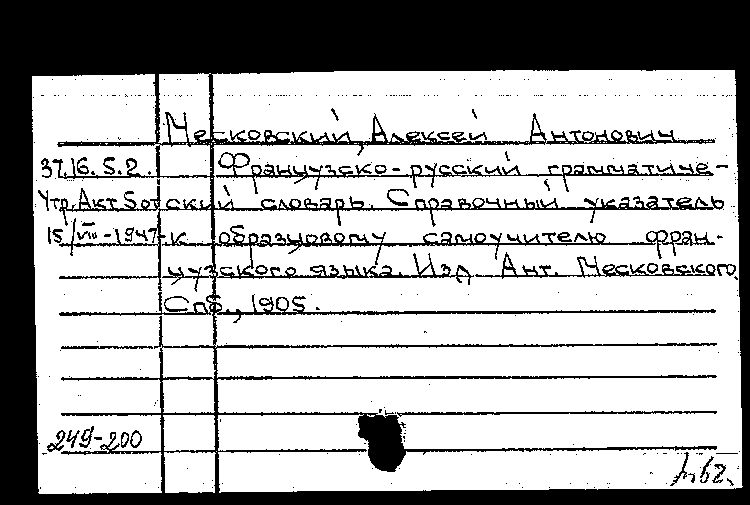 Месковский, Алексей Антонович
37.16.5.2. Французско-русский грамматиче-
Утр. Акт 5 от ский словарь. Справочный указатель
15/VIII-1947 к образцовому самоучителю фран-
цузского языка. Изд. Ант. Месковского.
Спб., 1905.
249-200